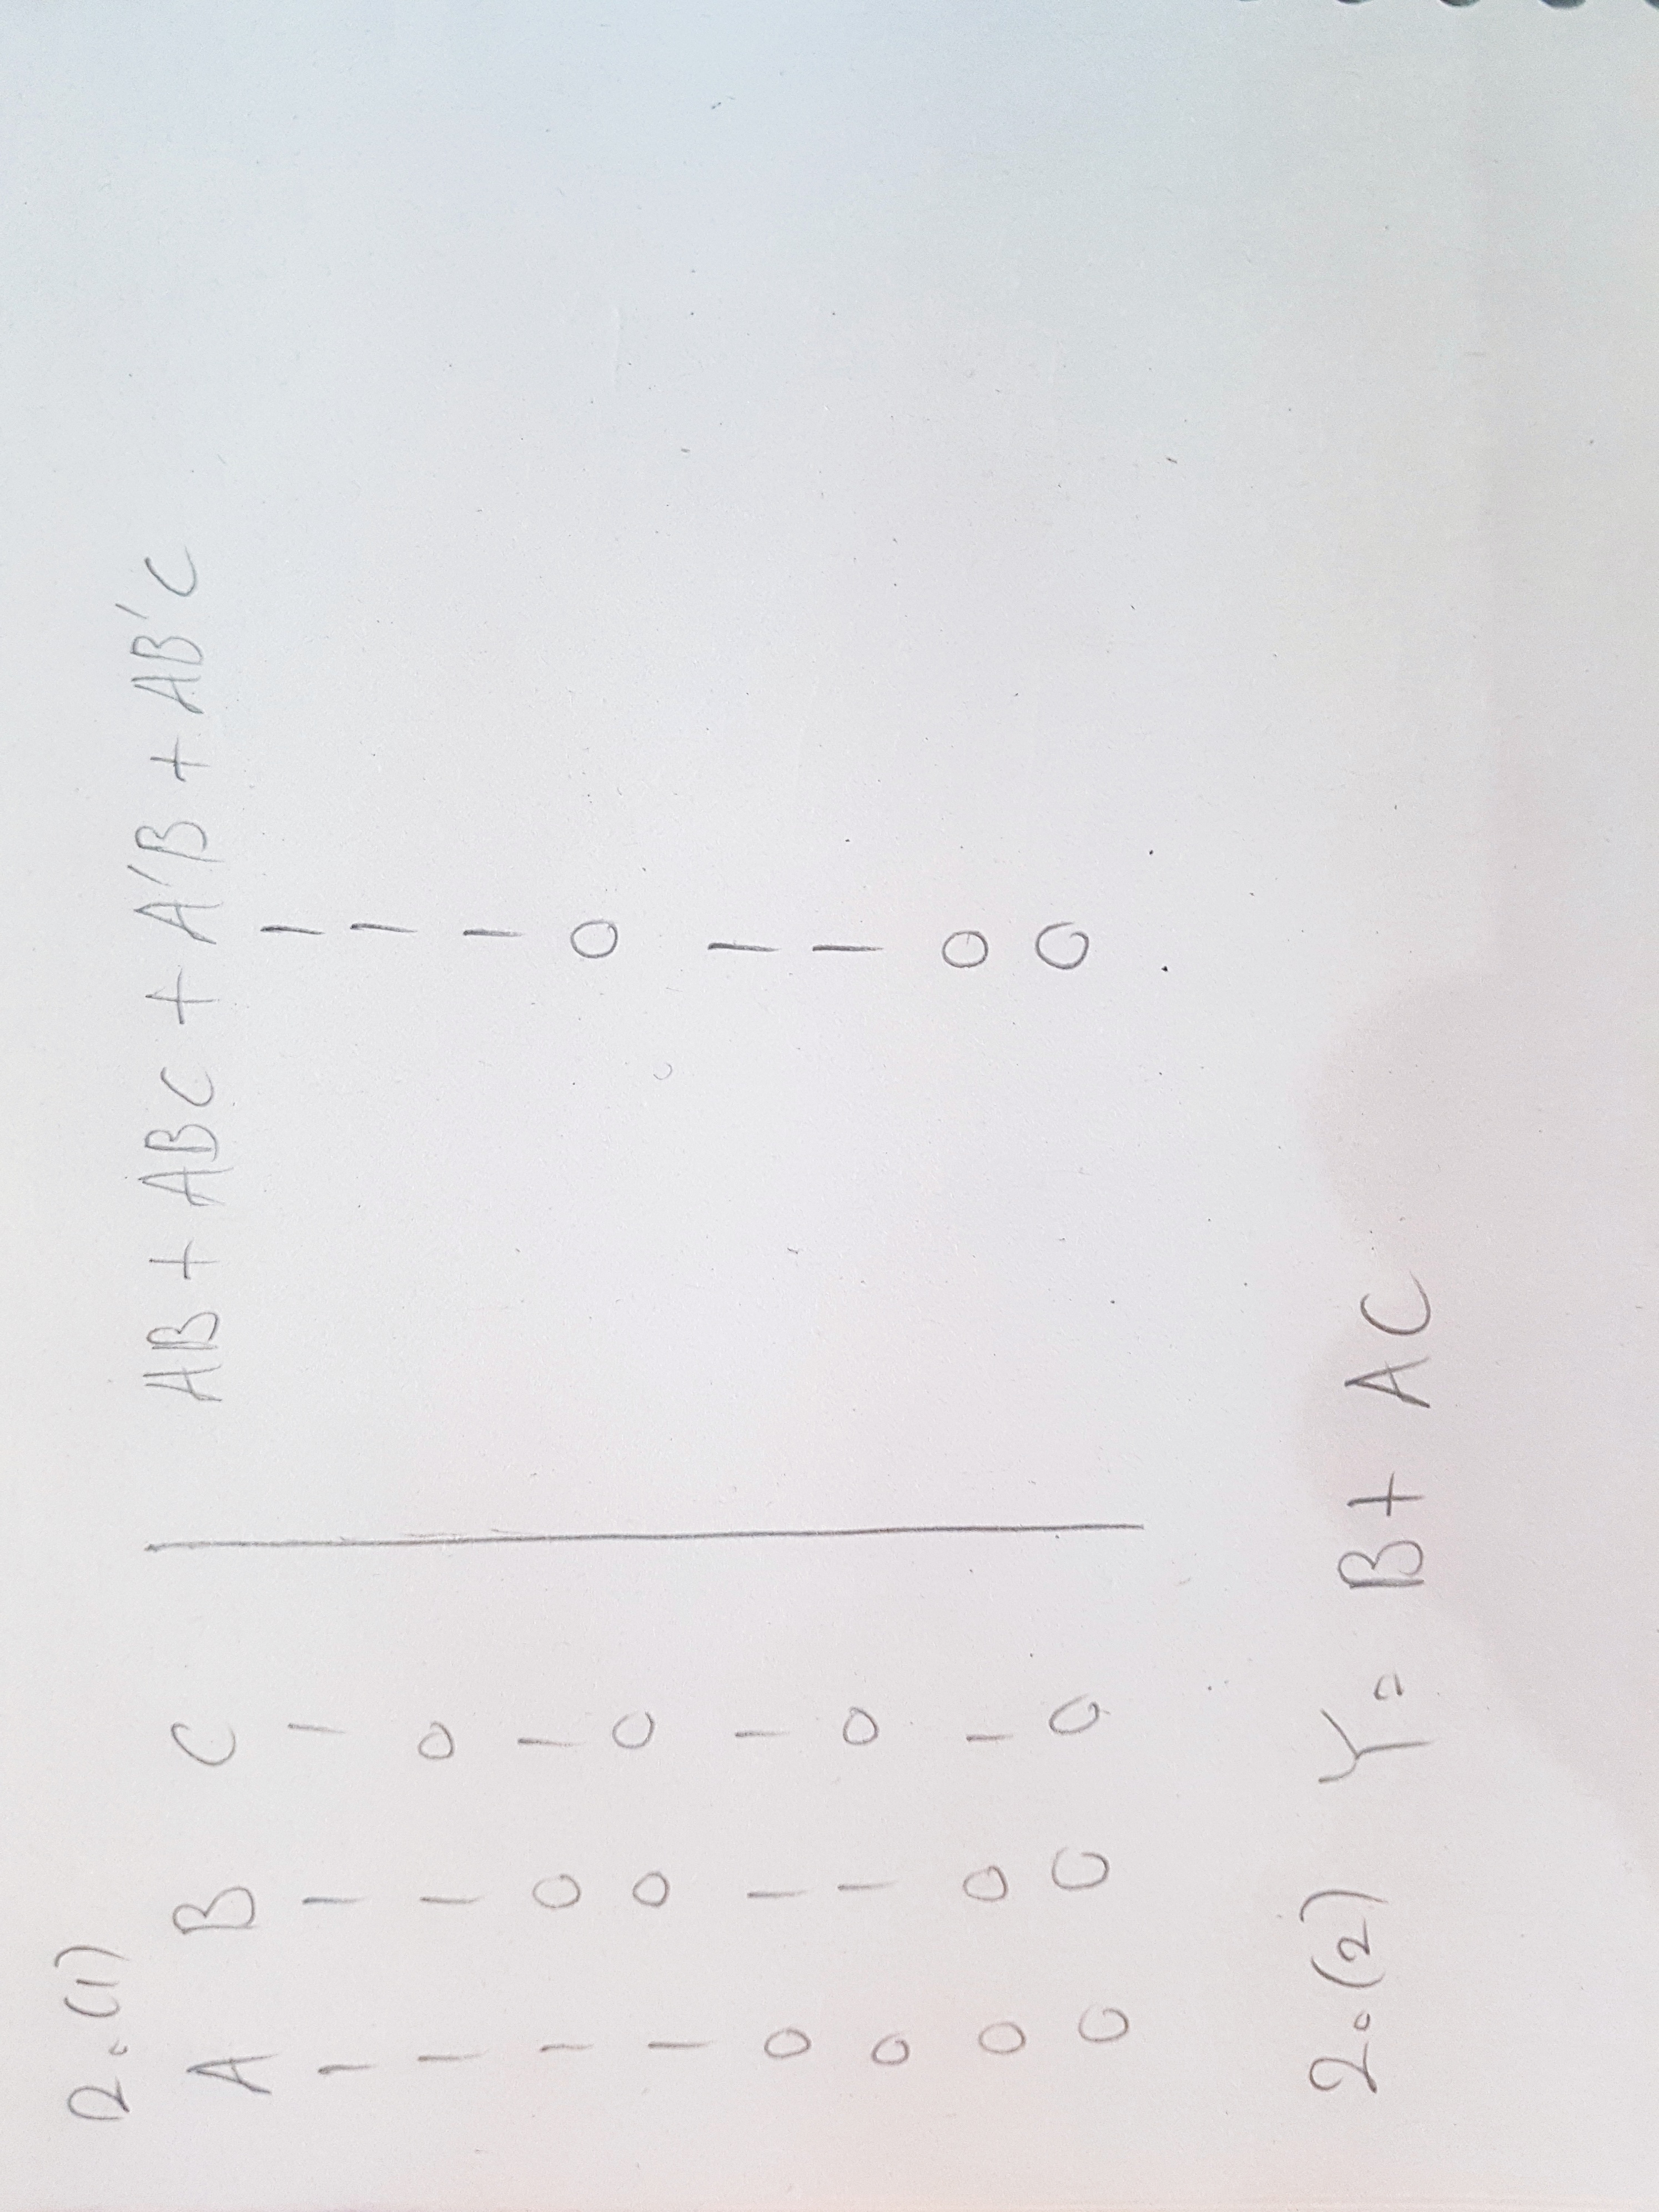 2.(1)
A B C | AB + ABC + A'B + AB'C
1 1 1 | 1
1 1 0 | 1
1 0 1 | 1
1 0 0 | 0
0 1 1 | 1
0 1 0 | 1
0 0 1 | 0
0 0 0 | 0
2.(2) Y = B + AC